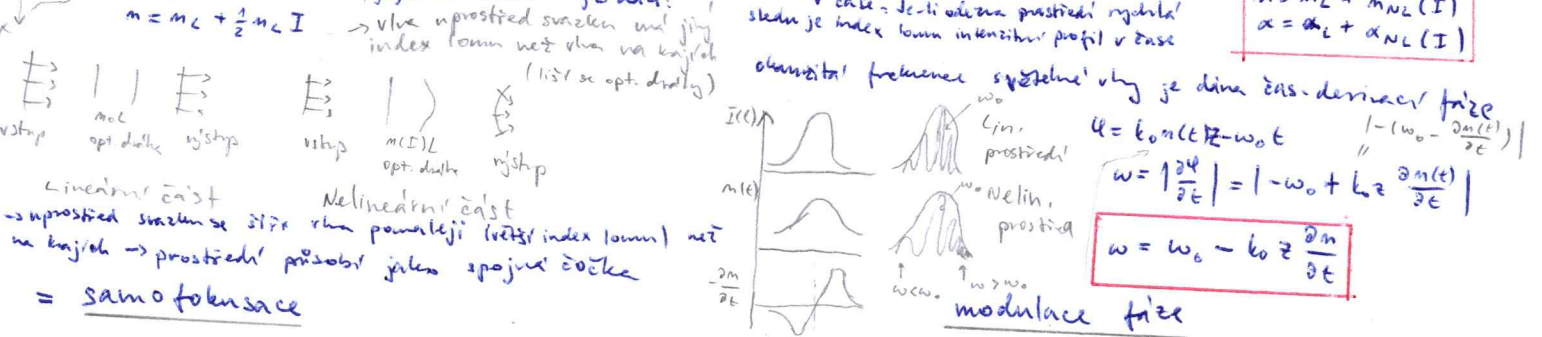 n = n_L + ½ n_L I
→ vlna uprostřed svazku má jiný
index lomu než vlna na krajích
(liší se opt. dráhy)
vstup
n₀L
opt. dráha
výstup
vstup
n(I)L
opt. dráha
výstup
Lineární část
Nelineární část
→ uprostřed svazku se šíří vlna pomaleji (větší index lomu) než
na krajích → prostředí působí jako spojná čočka
= samofokusace
v čase - Je-li odezva prostředí rychlá
sleduje index lomu intenzitní profil v čase
α = α_L + α_NL (I)
okamžitá frekvence světelné vlny je dána čas. derivací fáze
I(t)
ω₀
Lin.
prostředí
n(t)
ω₀ Nelin.
prostřed
-∂n/∂t
ω<ω₀
ω>ω₀
φ = k₀n(t)z - ω₀t
|-(ω₀ - ∂n(t)/∂t)|
ω = |∂φ/∂t| = |-ω₀ + k₀z ∂n(t)/∂t|
ω = ω₀ - k₀ z ∂n/∂t
modulace fáze